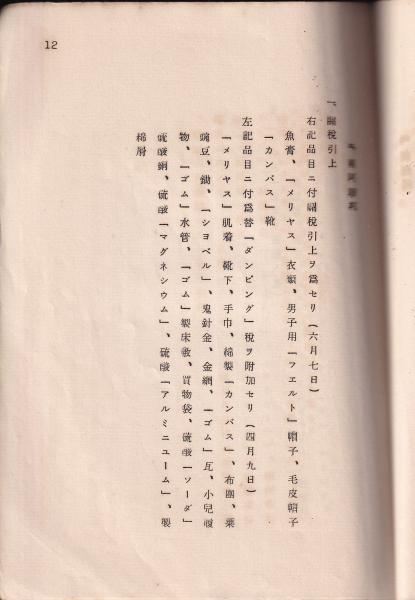 12
一、關稅引上
右記品目ニ付關稅引上ヲ爲セリ(六月七日)
魚膏、「メリヤス」衣類、男子用「フエルト」帽子、毛皮帽子
「カンバス」靴
左記品目ニ付爲替「ダンピング」稅ヲ附加セリ(四月九日)
「メリヤス」肌着、靴下、手巾、綿製「カンバス」、布團、葉
豌豆、鋤、「シヨベル」、鬼針金、金網、「ゴム」瓦、小兒
物、「ゴム」水管、「ゴム」製床敷、買物袋、硫酸「ソーダ」
硫酸銅、硫酸「マグネシウム」、硫酸「アルミニユーム」、製
綿屑